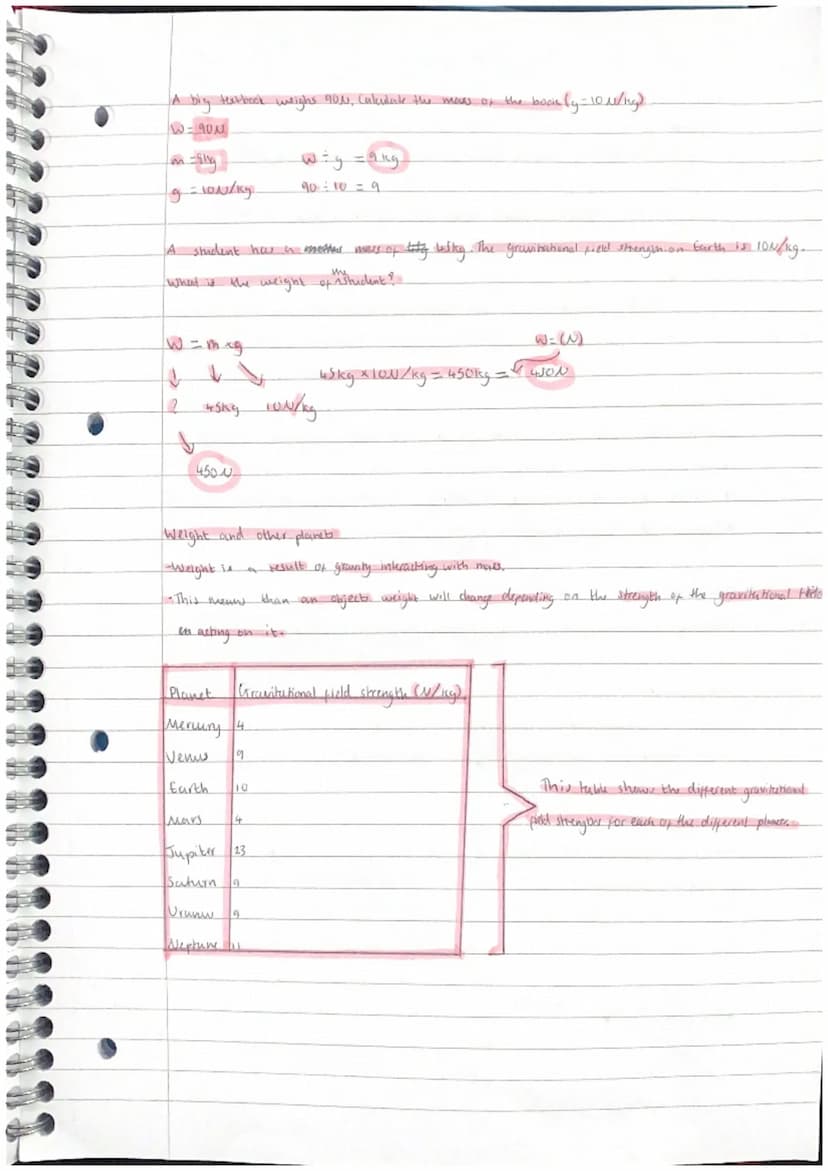 A big textbook weighs 90N, Calculate the mass of the book (g=10N/kg)
W = 90N
m = 9kg W ÷ g = 9kg
g = 10N/kg 90 ÷ 10 = 9
A student has a mass of 45kg. The gravitational field strength on Earth is 10N/kg.
What is the weight of the student?
W = m × g W = (N)
45kg × 10N/kg = 450kg = 450N
? 45kg 10N/kg
450N
Weight and other planets
-Weight is a result of gravity interacting with mass.
-This means than an objects weight will change depending on the strength of the gravitational
acting on it.
Planet Gravitational field strength (N/kg)
Mercury 4
Venus 9
Earth 10
Mars 4
Jupiter 23
Saturn 9
Uranus 9
Neptune 11
This table shows the different gravitational
field strengths for each of the different planets.